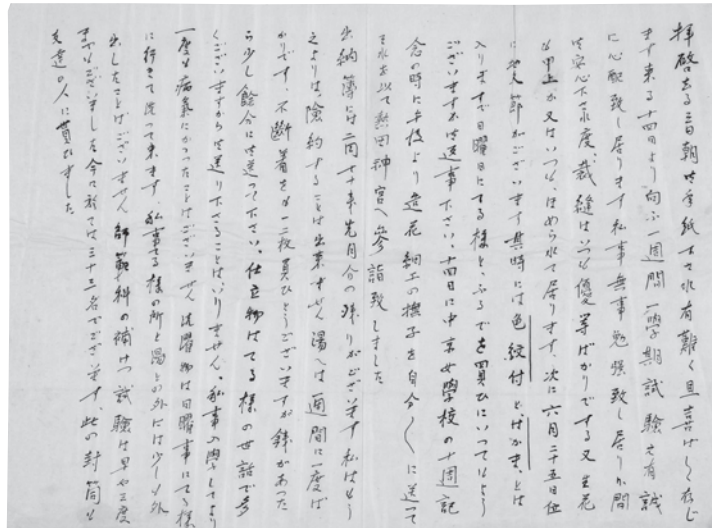 拝啓去る三日朝御手紙下され有難く且喜ばしく存じ
ます来る十四日より向ふ一週間一學期試験之有誠
に心配致し居ります私事無事勉強致し居りか間
御安心下され度、裁縫はいつも優等ばかりでする又生花
も甲上か又はいつも、ほめられて居ります、次に六月二十五日位
に地久節がございます其時には色紋付と、はかまとは
入りますで日曜日にてる様と、ふろでを買ひにいつてもよう
ございますか御返事下さい、十四日に中京女學校の十週記
念の時に本校より造花細工の撫子を自分〱に造つて
それを以て熱田神宮へ参詣致しました
出納簿には二円七十銭先月分の残りがございます私はもう
之よりは、険約することは出来ません湯へは一週間に一度ば
かりです、不断着を一二枚買ひとうございますが銭があった
ら少し餘分に御送って下さい、仕立物はてる様の世話で多
くございますから御送り下さることはいりません、私事入學してより
一度も病氣にかゝったことはございません洗濯物は日曜事にてる様
に行きて洗って来ます、私事てる様の所と湯との外には少しも外
出したことはございません師範科の補けつ試験は早や二度
までもございました今に於ては三十三名でございます、此の封筒も
友達の人に貰ひました